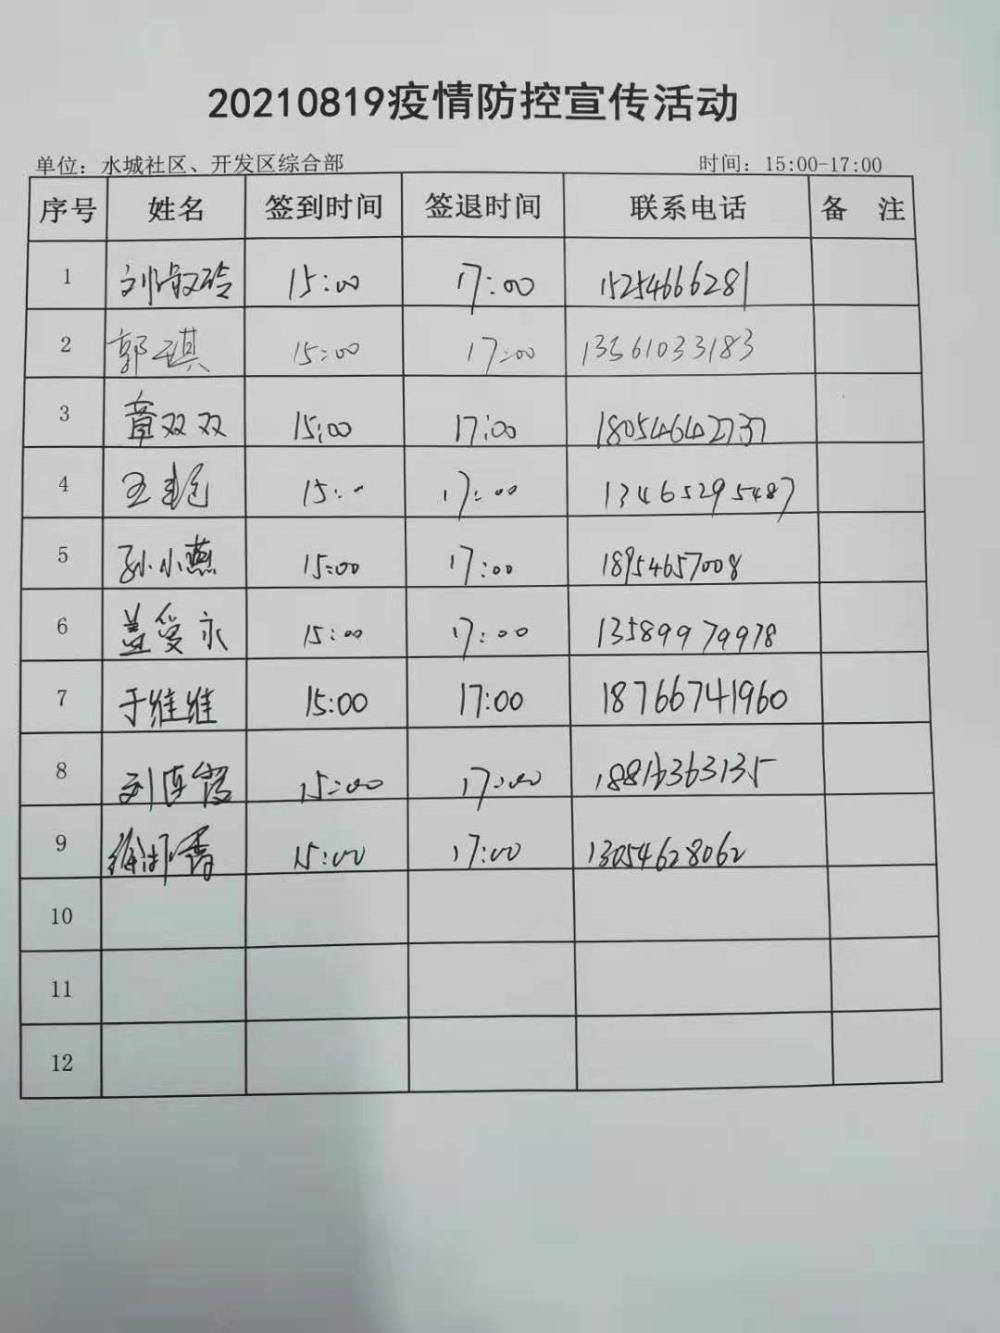 20210819疫情防控宣传活动
单位：水城社区、开发区综合部 时间：15:00-17:00
序号 姓名 签到时间 签退时间 联系电话 备 注
1 刘敏玲 15:00 17:00 15254666281
2 郭琪 15:00 17:00 13561033183
3 章双双 15:00 17:00 18054642737
4 王 15:00 17:00 13465295487
5 孙小燕 15:00 17:00 18954657008
6 盖爱永 15:00 17:00 13589979978
7 于维维 15:00 17:00 18766741960
8 刘连霞 15:00 17:00 18816363135
9 15:00 17:00 13054628062
10
11
12